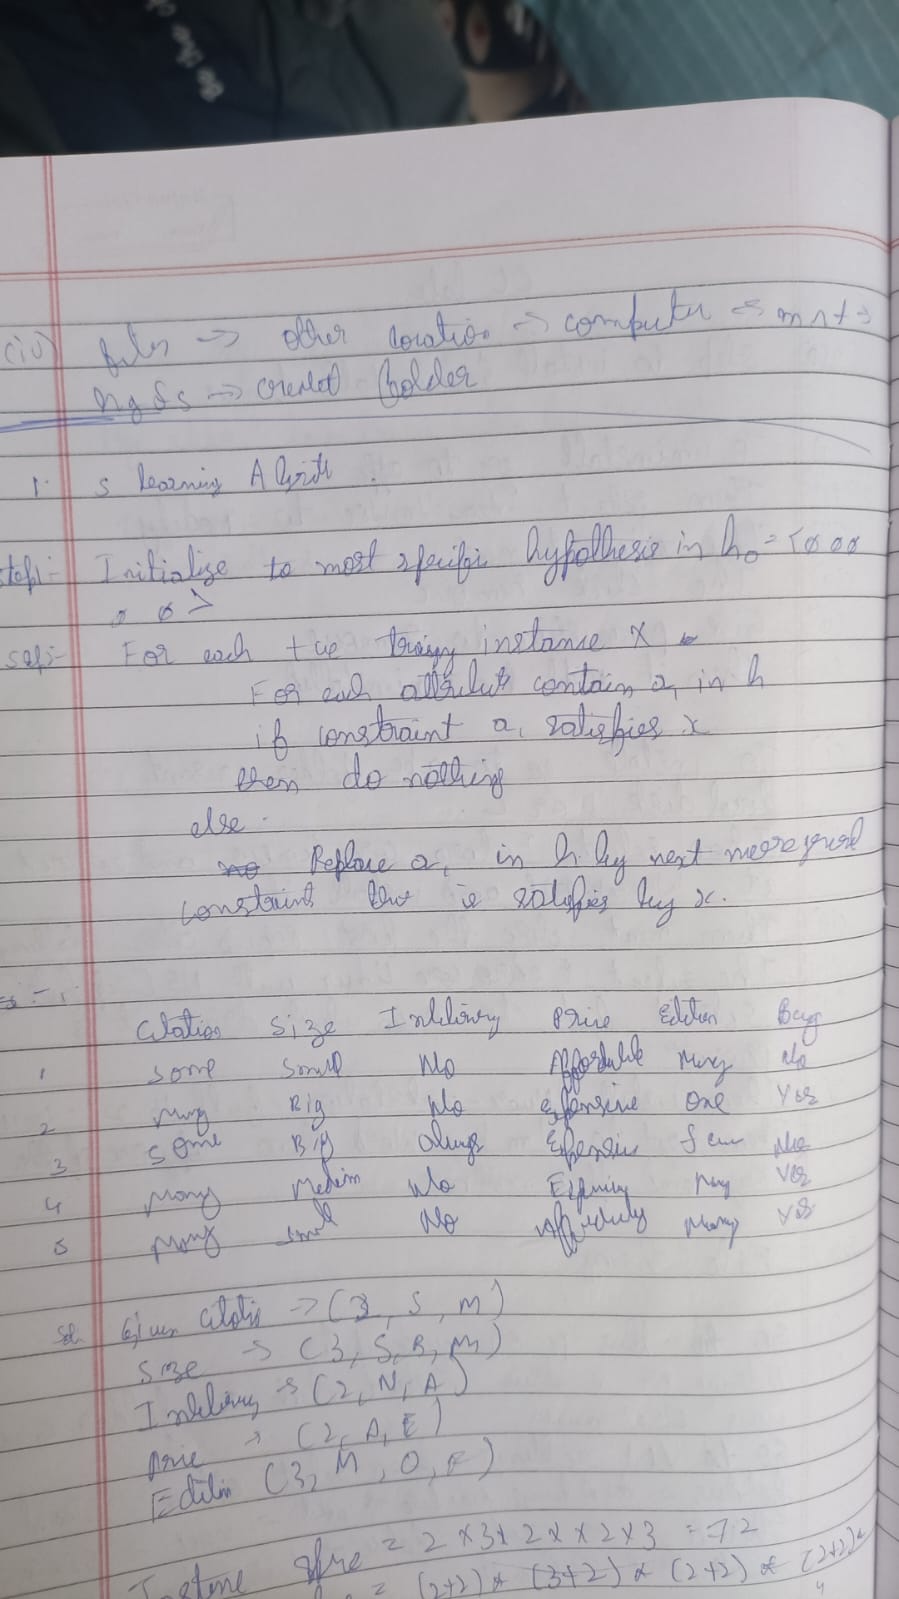 (iv) files → other location → computer → mnt →
hgfs → created folder
1. S learning Algrith.
Initialize to most specific hypothesis in h0 = <ø ø ø
ø ø>
For each +ve training instance x
For each attribute contain a, in h
if constraint a, satisfies x
then do nothing
else.
Replace a, in h by next more general
constraint that is satisfies by x.
Citation Size Inlibrary Price Edition Buy
1 Some Small No Affordable Many No
2 Many Big No Expensive One Yes
3 Some Big Always Expensiv few No
4 Many Medium No Many Yes
5 Many Small No Many Yes
Sol. Given → (3, S, M)
Size → (3, S, B, M)
→ (2, N, A)
→ (2, A, E)
(3, M, O, F)
= 2 x 3 x 2 x x 2 x 3 = 72
= (2+2) * (3+2) * (2+2) * (2+2) *